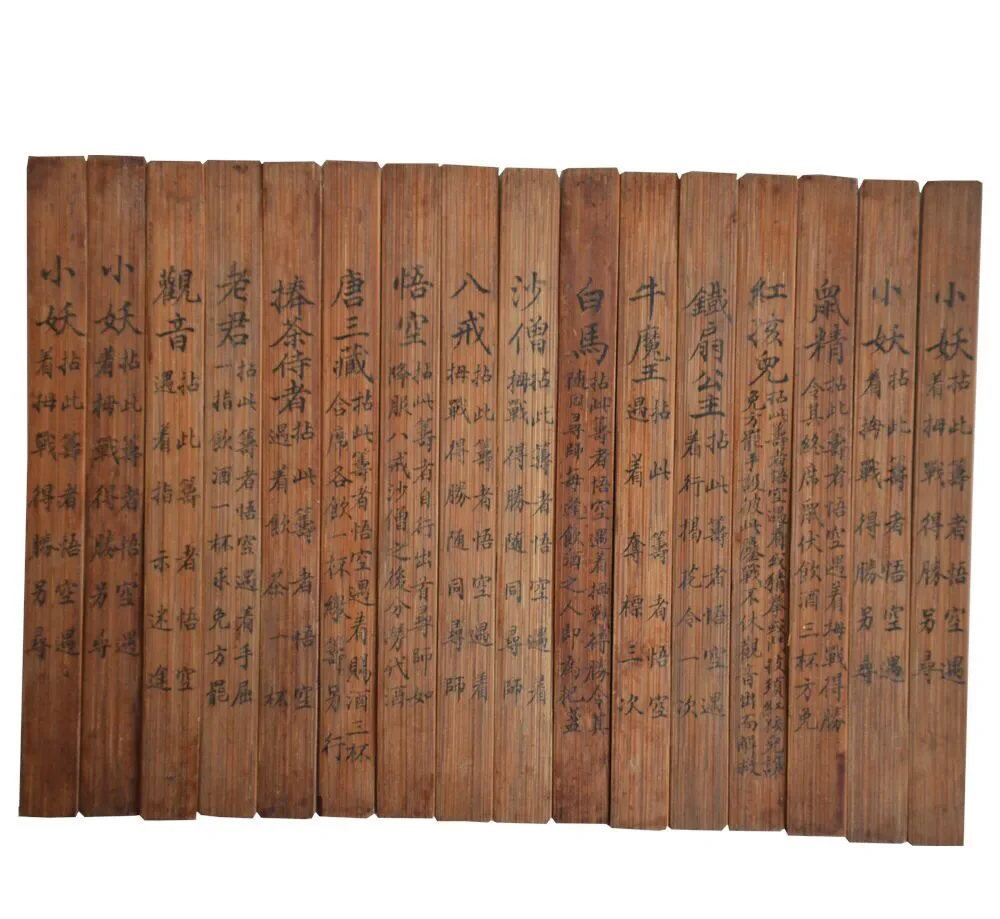 小妖
拈此籌者悟空遇
着拇戰得勝另尋
小妖
拈此籌者悟空遇
着拇戰得勝另尋
鼠精
拈此籌者悟空遇着拇戰得勝
令其終席鼠伏飲酒三杯方免
紅孩兒
拈此籌者悟空遇着 紅孩兒
免方罷手 彼此鏖戰不休觀音出而解救
鐵扇公主
拈此籌者悟空遇
着行揭花令一次
牛魔王
拈此籌者悟空
遇着奪標三次
白馬
拈此籌者悟空遇着拇戰得勝令其
隨同尋師每逢飲酒之人即為把盞
沙僧
拈此籌者悟空遇着
拇戰得勝随同尋師
八戒
拈此籌者悟空遇着
拇戰得勝随同尋師
悟空
拈此籌者自行出首尋師如
降服八戒沙僧之後分勞代酒
唐三藏
拈此籌者悟空遇着賜酒三杯
合席各飲一杯繳籌另行
捧茶侍者
拈此籌者悟空
遇着飲茶一杯
老君
拈此籌者悟空遇着手屈
一指飲酒一杯求免方罷
觀音
拈此籌者悟空
遇着指示迷途
小妖
拈此籌者悟空遇
着拇戰得勝另尋
小妖
拈此籌者悟空遇
着拇戰得勝另尋